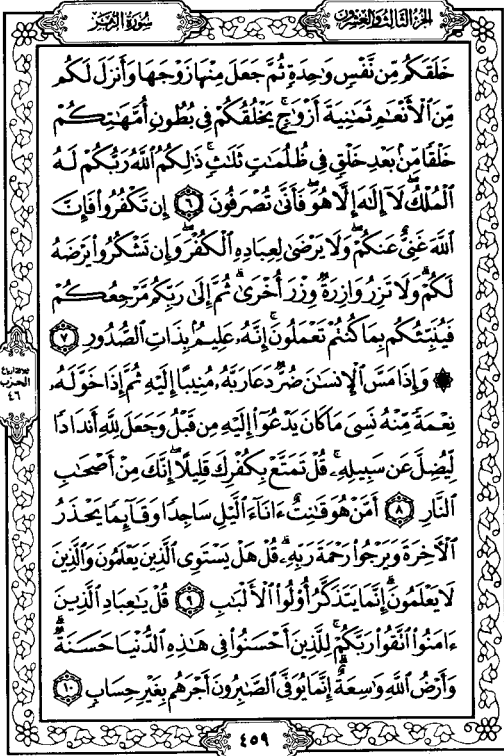 سورة الزمر
الجزء الثالث والعشرون
خَلَقَكُم مِّن نَّفْسٍ وَٰحِدَةٍ ثُمَّ جَعَلَ مِنْهَا زَوْجَهَا وَأَنزَلَ لَكُم
مِّنَ ٱلْأَنْعَٰمِ ثَمَٰنِيَةَ أَزْوَٰجٍ ۚ يَخْلُقُكُمْ فِى بُطُونِ أُمَّهَٰتِكُمْ
خَلْقًا مِّنۢ بَعْدِ خَلْقٍ فِى ظُلُمَٰتٍ ثَلَٰثٍ ۚ ذَٰلِكُمُ ٱللَّهُ رَبُّكُمْ لَهُ
ٱلْمُلْكُ ۖ لَآ إِلَٰهَ إِلَّا هُوَ ۖ فَأَنَّىٰ تُصْرَفُونَ ٦ إِن تَكْفُرُوا۟ فَإِنَّ
ٱللَّهَ غَنِىٌّ عَنكُمْ ۖ وَلَا يَرْضَىٰ لِعِبَادِهِ ٱلْكُفْرَ ۖ وَإِن تَشْكُرُوا۟ يَرْضَهُ
لَكُمْ ۗ وَلَا تَزِرُ وَازِرَةٌ وِزْرَ أُخْرَىٰ ۗ ثُمَّ إِلَىٰ رَبِّكُم مَّرْجِعُكُمْ
فَيُنَبِّئُكُم بِمَا كُنتُمْ تَعْمَلُونَ ۚ إِنَّهُۥ عَلِيمٌۢ بِذَاتِ ٱلصُّدُورِ ٧
۞ وَإِذَا مَسَّ ٱلْإِنسَٰنَ ضُرٌّ دَعَا رَبَّهُۥ مُنِيبًا إِلَيْهِ ثُمَّ إِذَا خَوَّلَهُۥ
نِعْمَةً مِّنْهُ نَسِىَ مَا كَانَ يَدْعُوٓا۟ إِلَيْهِ مِن قَبْلُ وَجَعَلَ لِلَّهِ أَندَادًا
لِّيُضِلَّ عَن سَبِيلِهِۦ ۚ قُلْ تَمَتَّعْ بِكُفْرِكَ قَلِيلًا ۖ إِنَّكَ مِنْ أَصْحَٰبِ
ٱلنَّارِ ٨ أَمَّنْ هُوَ قَٰنِتٌ ءَانَآءَ ٱلَّيْلِ سَاجِدًا وَقَآئِمًا يَحْذَرُ
ٱلْءَاخِرَةَ وَيَرْجُوا۟ رَحْمَةَ رَبِّهِۦ ۗ قُلْ هَلْ يَسْتَوِى ٱلَّذِينَ يَعْلَمُونَ وَٱلَّذِينَ
لَا يَعْلَمُونَ ۗ إِنَّمَا يَتَذَكَّرُ أُو۟لُوا۟ ٱلْأَلْبَٰبِ ٩ قُلْ يَٰعِبَادِ ٱلَّذِينَ
ءَامَنُوا۟ ٱتَّقُوا۟ رَبَّكُمْ ۚ لِلَّذِينَ أَحْسَنُوا۟ فِى هَٰذِهِ ٱلدُّنْيَا حَسَنَةٌ ۗ
وَأَرْضُ ٱللَّهِ وَٰسِعَةٌ ۗ إِنَّمَا يُوَفَّى ٱلصَّٰبِرُونَ أَجْرَهُم بِغَيْرِ حِسَابٍ ١٠
الحزب
٤٦
٤٥٩